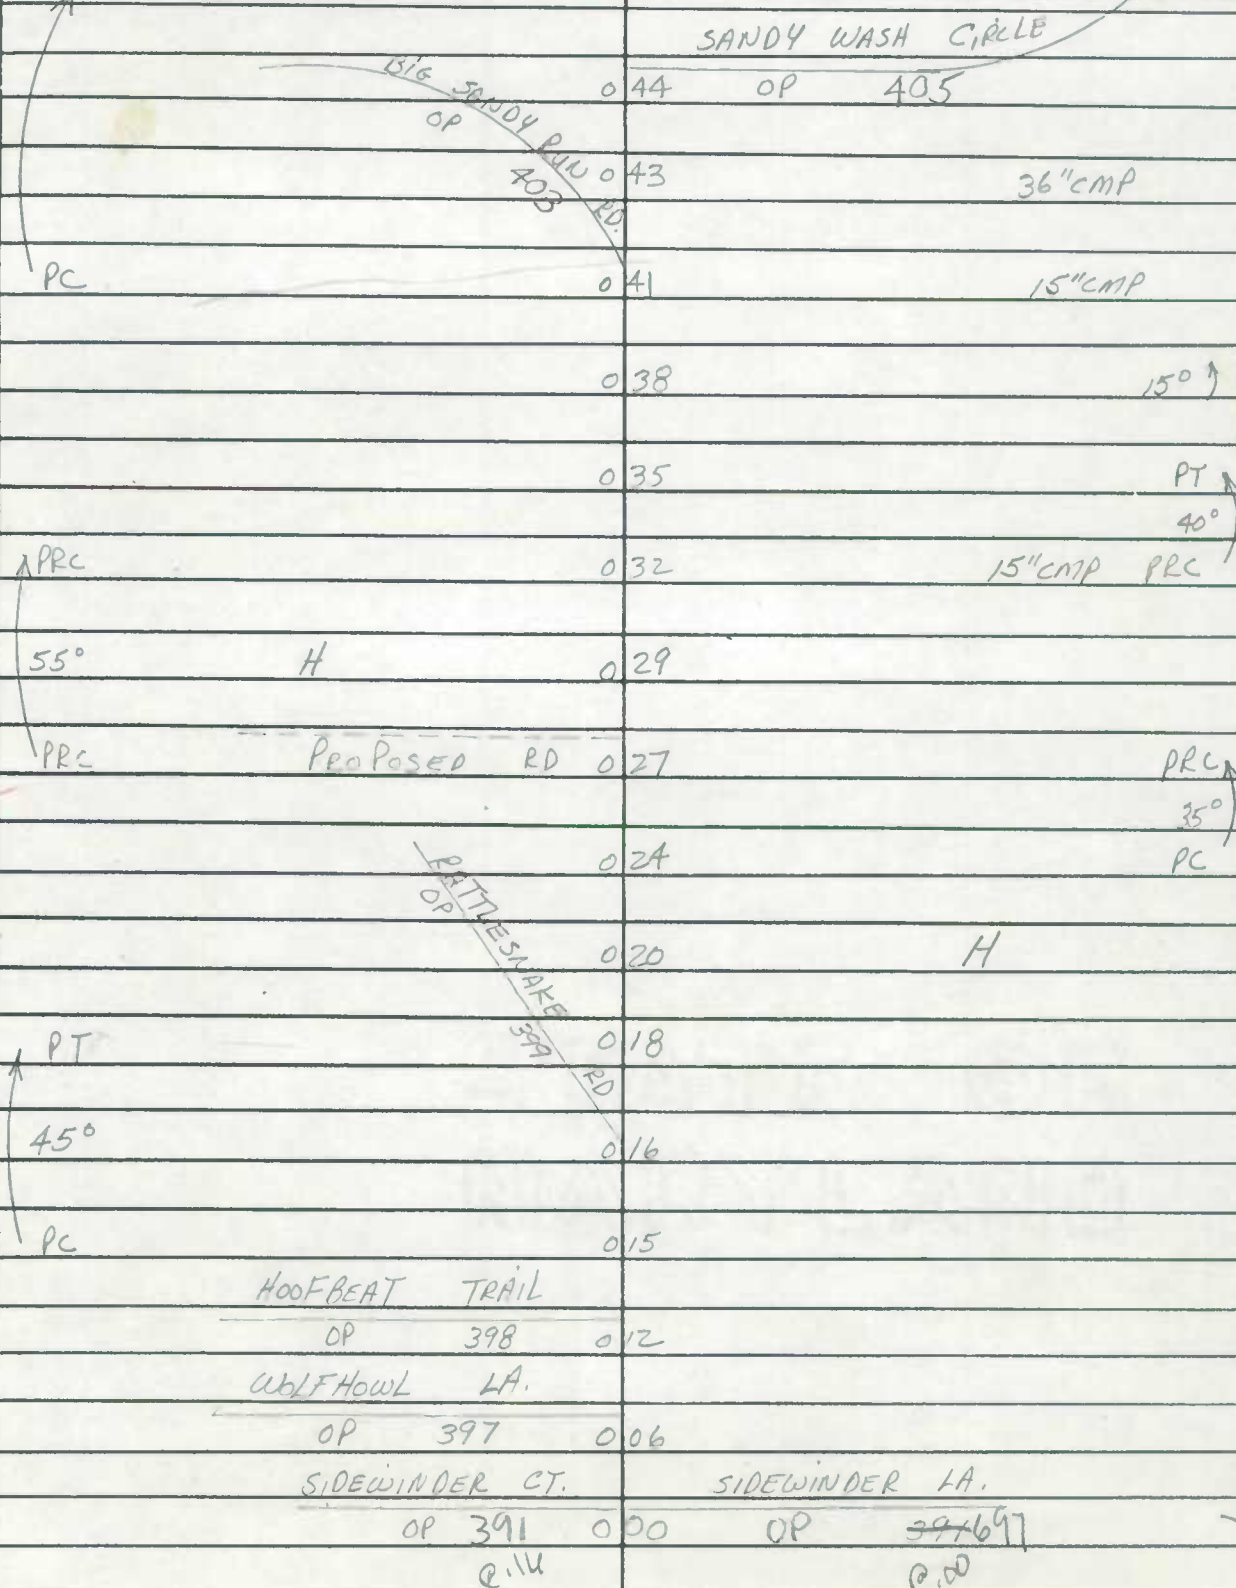 SANDY WASH CIRCLE
BIG SANDY RUN RD.
OP 403
0 44 OP 405
0 43 36" CMP
PC 0 41 15" CMP
0 38 15°
0 35 PT
40°
PRC 0 32 15" CMP PRC
55° H 0 29
PRC PROPOSED RD 0 27 PRC
35°
0 24 PC
RATTLESNAKE RD
OP 399
0 20 H
PT 0 18
45° 0 16
PC 0 15
HOOFBEAT TRAIL
OP 398 0 12
WOLFHOWL LA.
OP 397 0 06
SIDEWINDER CT. SIDEWINDER LA.
OP 391 0 00 OP 391 697
@ .14 @ .00